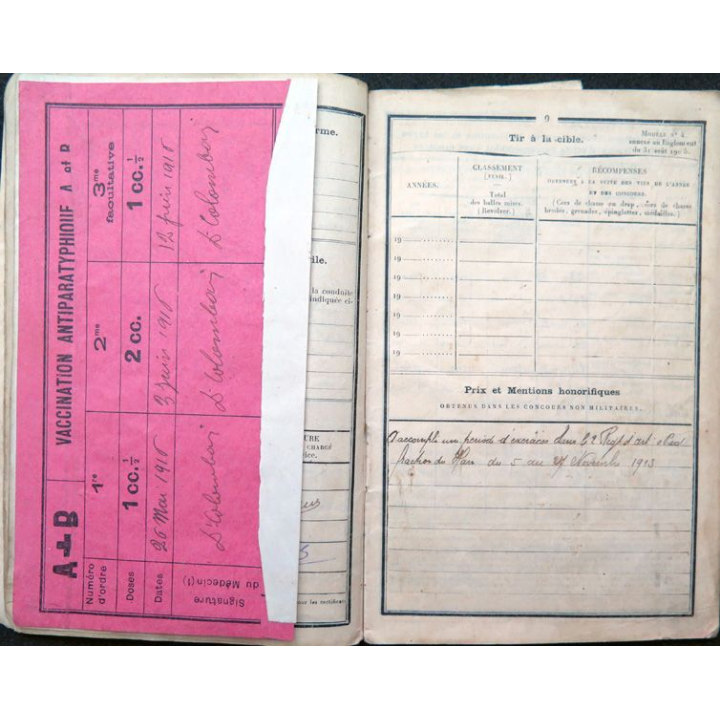 A & B VACCINATION ANTIPARATYPHIQUE A et B
Numéro d'ordre 1re 2me 3me facultative
Doses 1 cc. ½ 2 cc. 1 cc. ½
Dates 26 Mai 1916 3 juin 1916 12 juin 1916
Signature du Médecin (1) Dr Colombani Dr Colombani Dr Colombani
rme.
ile.
la conduite
indiquée ci-
URE
CHARGÉ
ice.
les certificats
9
Tir à la cible.
Modèle n° 4.
annexé au Règlement
du 31 août 1905.
ANNÉES.
CLASSEMENT
(FUSIL.)
Total
des balles mises.
(Revolver.)
RÉCOMPENSES
OBTENUES À LA SUITE DES TIRS DE L'ANNÉE
ET DES CONCOURS.
(Cors de chasse en drap, cors de chasse
brodés, grenades, épinglettes, médailles.)
19
19
19
19
19
19
19
Prix et Mentions honorifiques
OBTENUS DANS LES CONCOURS NON MILITAIRES.
A accompli une période d'exercices dans
du 5 au 27 Novembre 1913